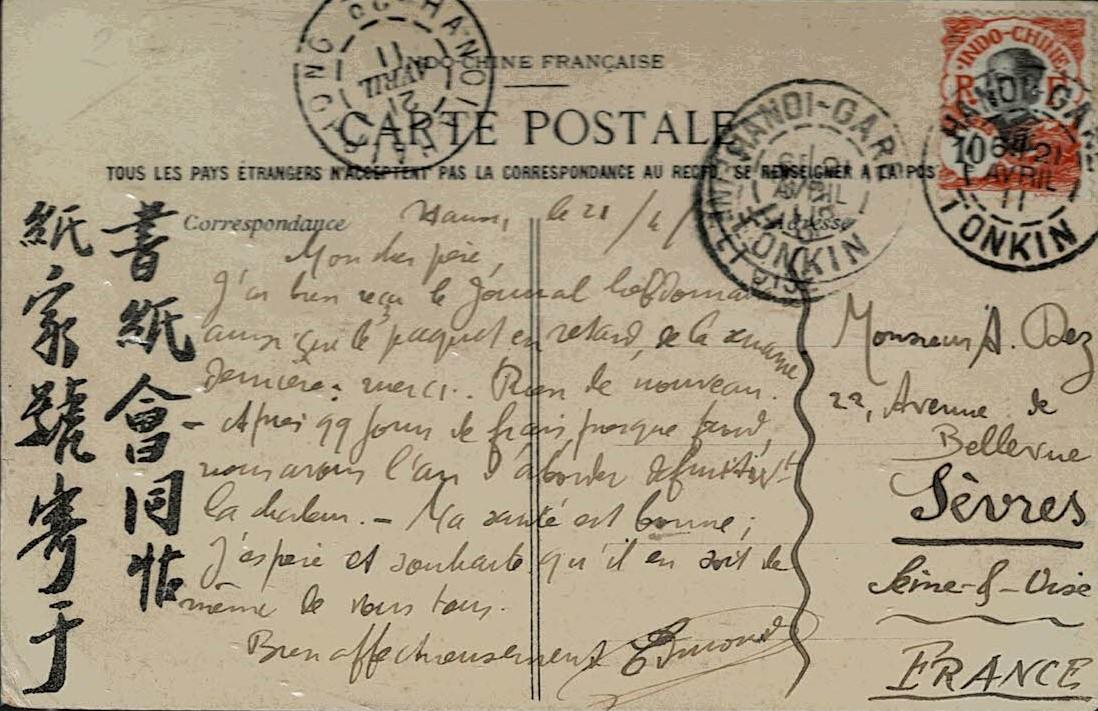 INDO-CHINE FRANÇAISE
CARTE POSTALE
TOUS LES PAYS ÉTRANGERS N'ACCEPTENT PAS LA CORRESPONDANCE AU RECTO. SE RENSEIGNER A LA POS
Correspondance
Adresse
INDO-CHINE
R F
10
HANOI-GARE
21
AVRIL
11
TONKIN
HANOI-GARE
AVRIL
TONKIN
HANOI
21
AVRIL
11
le 21/4/
Mon cher père,
J'ai bien reçu le Journal hebdomad
ainsi que le paquet en retard, de la semaine
dernière : merci. Rien de nouveau.
- Après 99 jours de frais, presque froid,
nous avons l'air d'aborder définitivt
la chaleur. - Ma santé est bonne ;
j'espère et souhaite qu'il en soit de
même de vous tous.
Bien affectueusement
Monsieur A. Dez
22, Avenue de
Bellevue
Sèvres
Seine-&-Oise
FRANCE
書紙會同
紙家號寄于